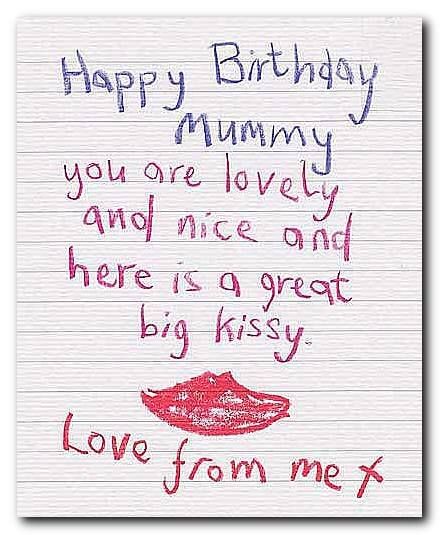 Happy Birthday
Mummy
you are lovely
and nice and
here is a great
big kissy.
Love from me x